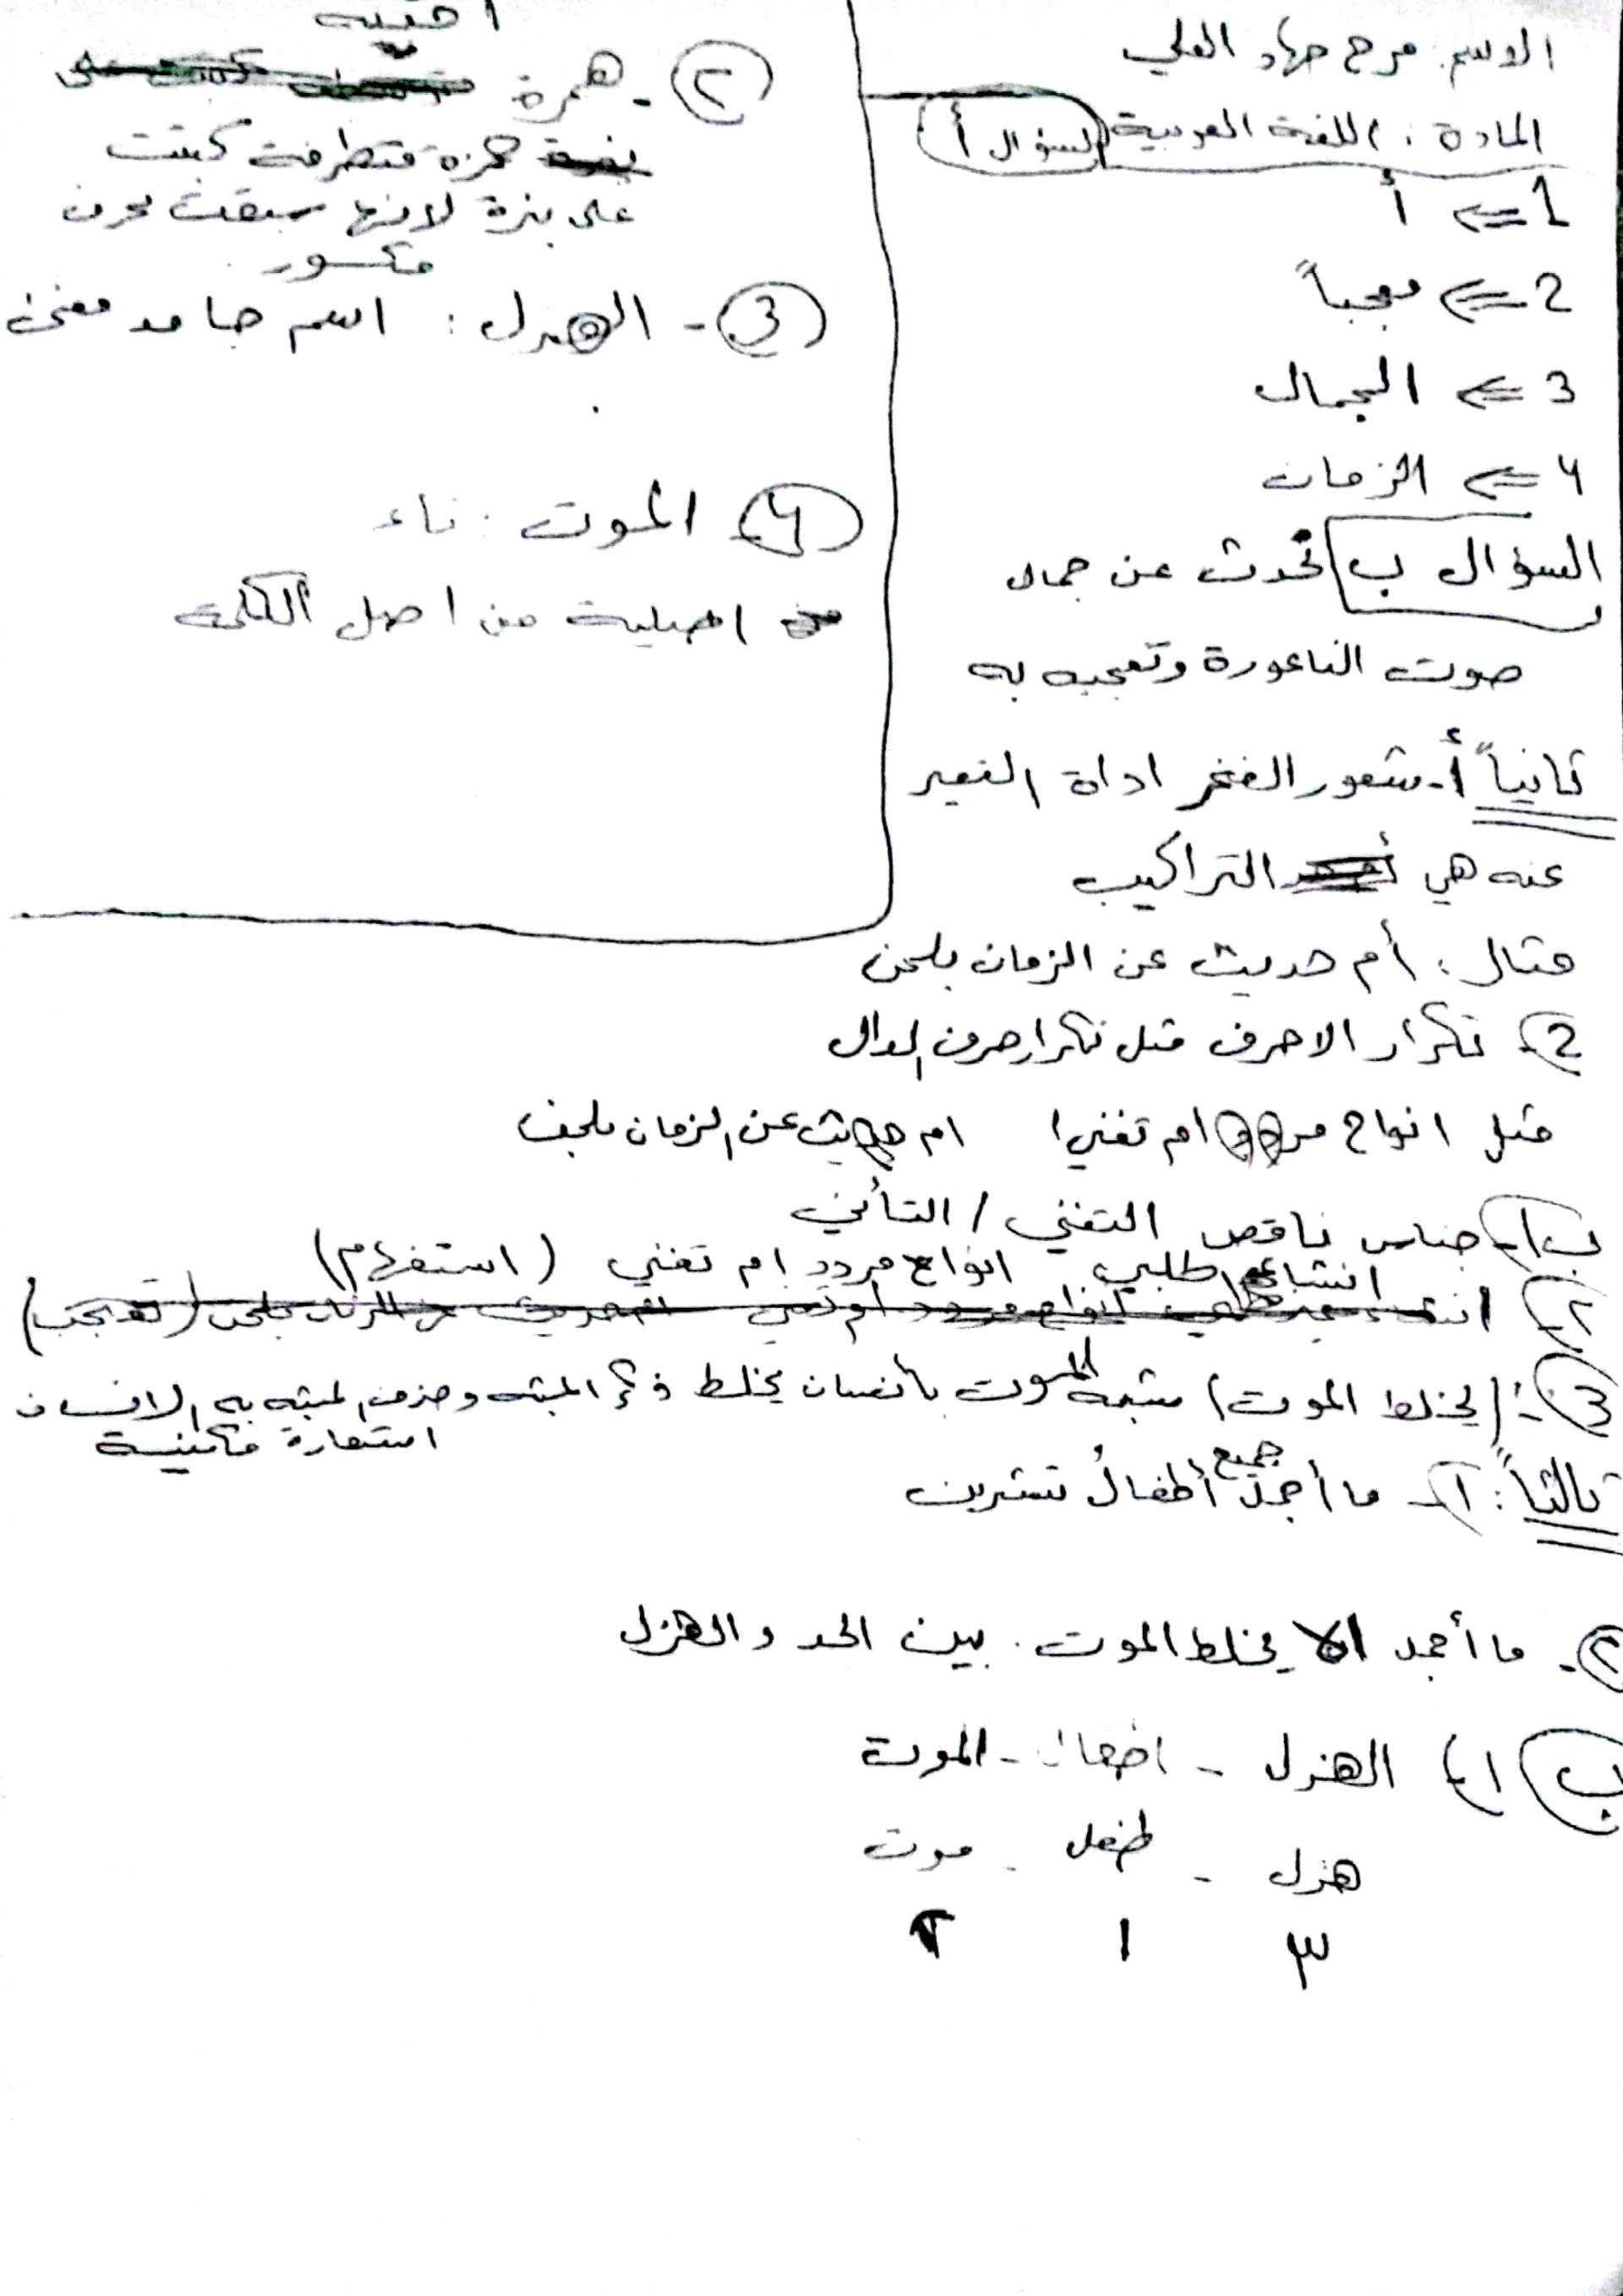 الاسم: مرح جهاد العلي
المادة: اللغة العربية السؤال أ
1 <= أ
2 <= معجباً
3 <= الجمال
4 <= الزمان
السؤال ب تحدث عن جمال
صوت الناعورة وتعجبه به
ثانياً أ- شعور الفخر اداة التعبير
عنه هي التراكيب
مثال: أم حديث عن الزمان بلحن
2- تكرار الاحرف مثل تكرار حرف الدال
مثل انواح مردد ام تغني! ام حديث عن الزمان بلحن
ب 1- جناس ناقص التغني / التأني
2- انشائي طلبي انواح مردد ام تغني (استفهام)
3-: (يخلط الموت) شبه الموت بانسان يخلط ذكر المشبه وحذف المشبه به الانسان
استعارة مكنية
ثالثاً: 1- ما أجمل جميع أطفال تشرين
2- ما أجمل الا يخلط الموت بين الجد والهزل
ب 1) الهزل - اطفال - الموت
هزل - طفل - موت
٣ ١ ٢
امنية
2- همزة
همزة متطرفة كتبت
على نبرة لانها سبقت بحرف
مكسور
3- الهزل: اسم جامد معنى
4 الموت: تاء
اصلية من اصل الكلمة